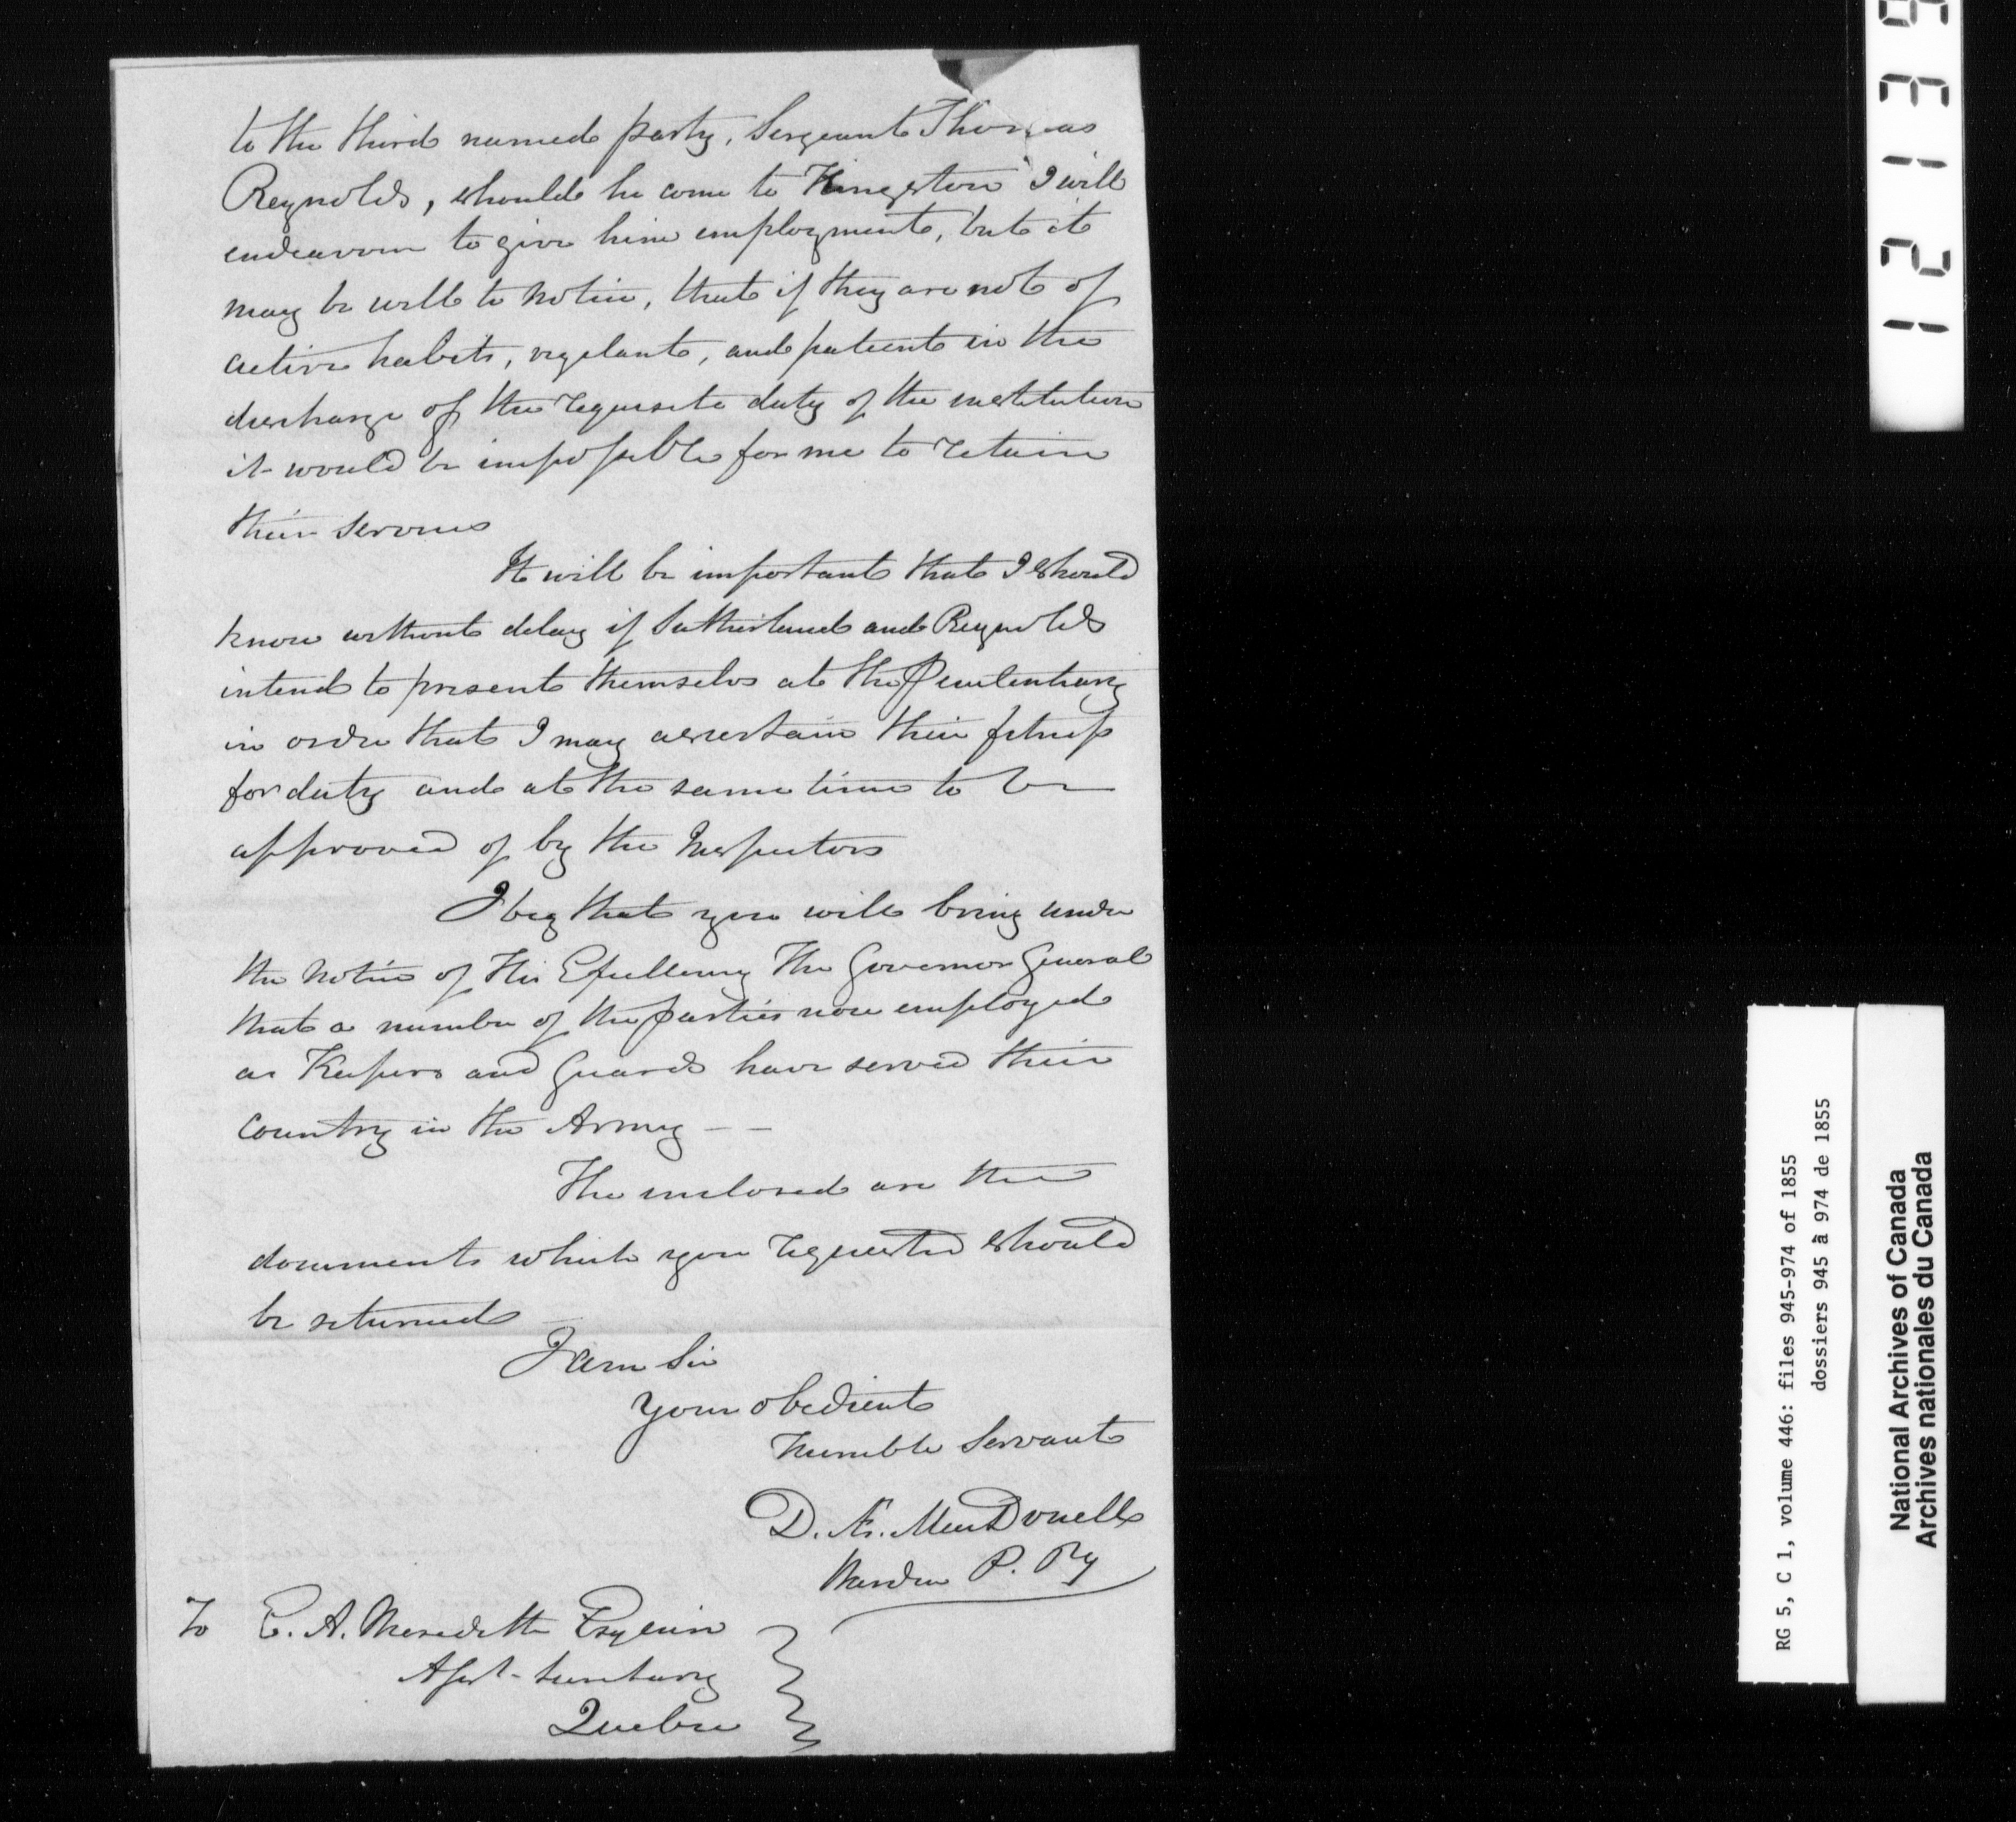 to the third named party, Sergeant Thomas
Reynolds, should he come to Kingston I will
endeavour to give him employment, but it
may be well to notice, that if they are not of
active habits, vigilant, and patient in the
discharge of the requisite duty of the institution
it would be impossible for me to retain
their services
It will be important that I should
know without delay if Sutherland and Reynolds
intend to present themselves at the Penitentiary
in order that I may ascertain their fitness
for duty and at the same time to be
approved of by the Inspectors
I beg that you will bring under
the notice of His Excellency The Governor General
that a number of the parties now employed
as Keepers and Guards have served their
country in the Army – –
The inclosed are the
documents which you requested should
be returned –
I am Sir
Your obedient
Humble Servant
D. Æ. MacDonell
Warden P. Py
To E. A. Meredith Esquire
Asst - Secretary
Quebec
12139
RG 5, C 1, volume 446: files 945-974 of 1855
dossiers 945 à 974 de 1855
National Archives of Canada
Archives nationales du Canada